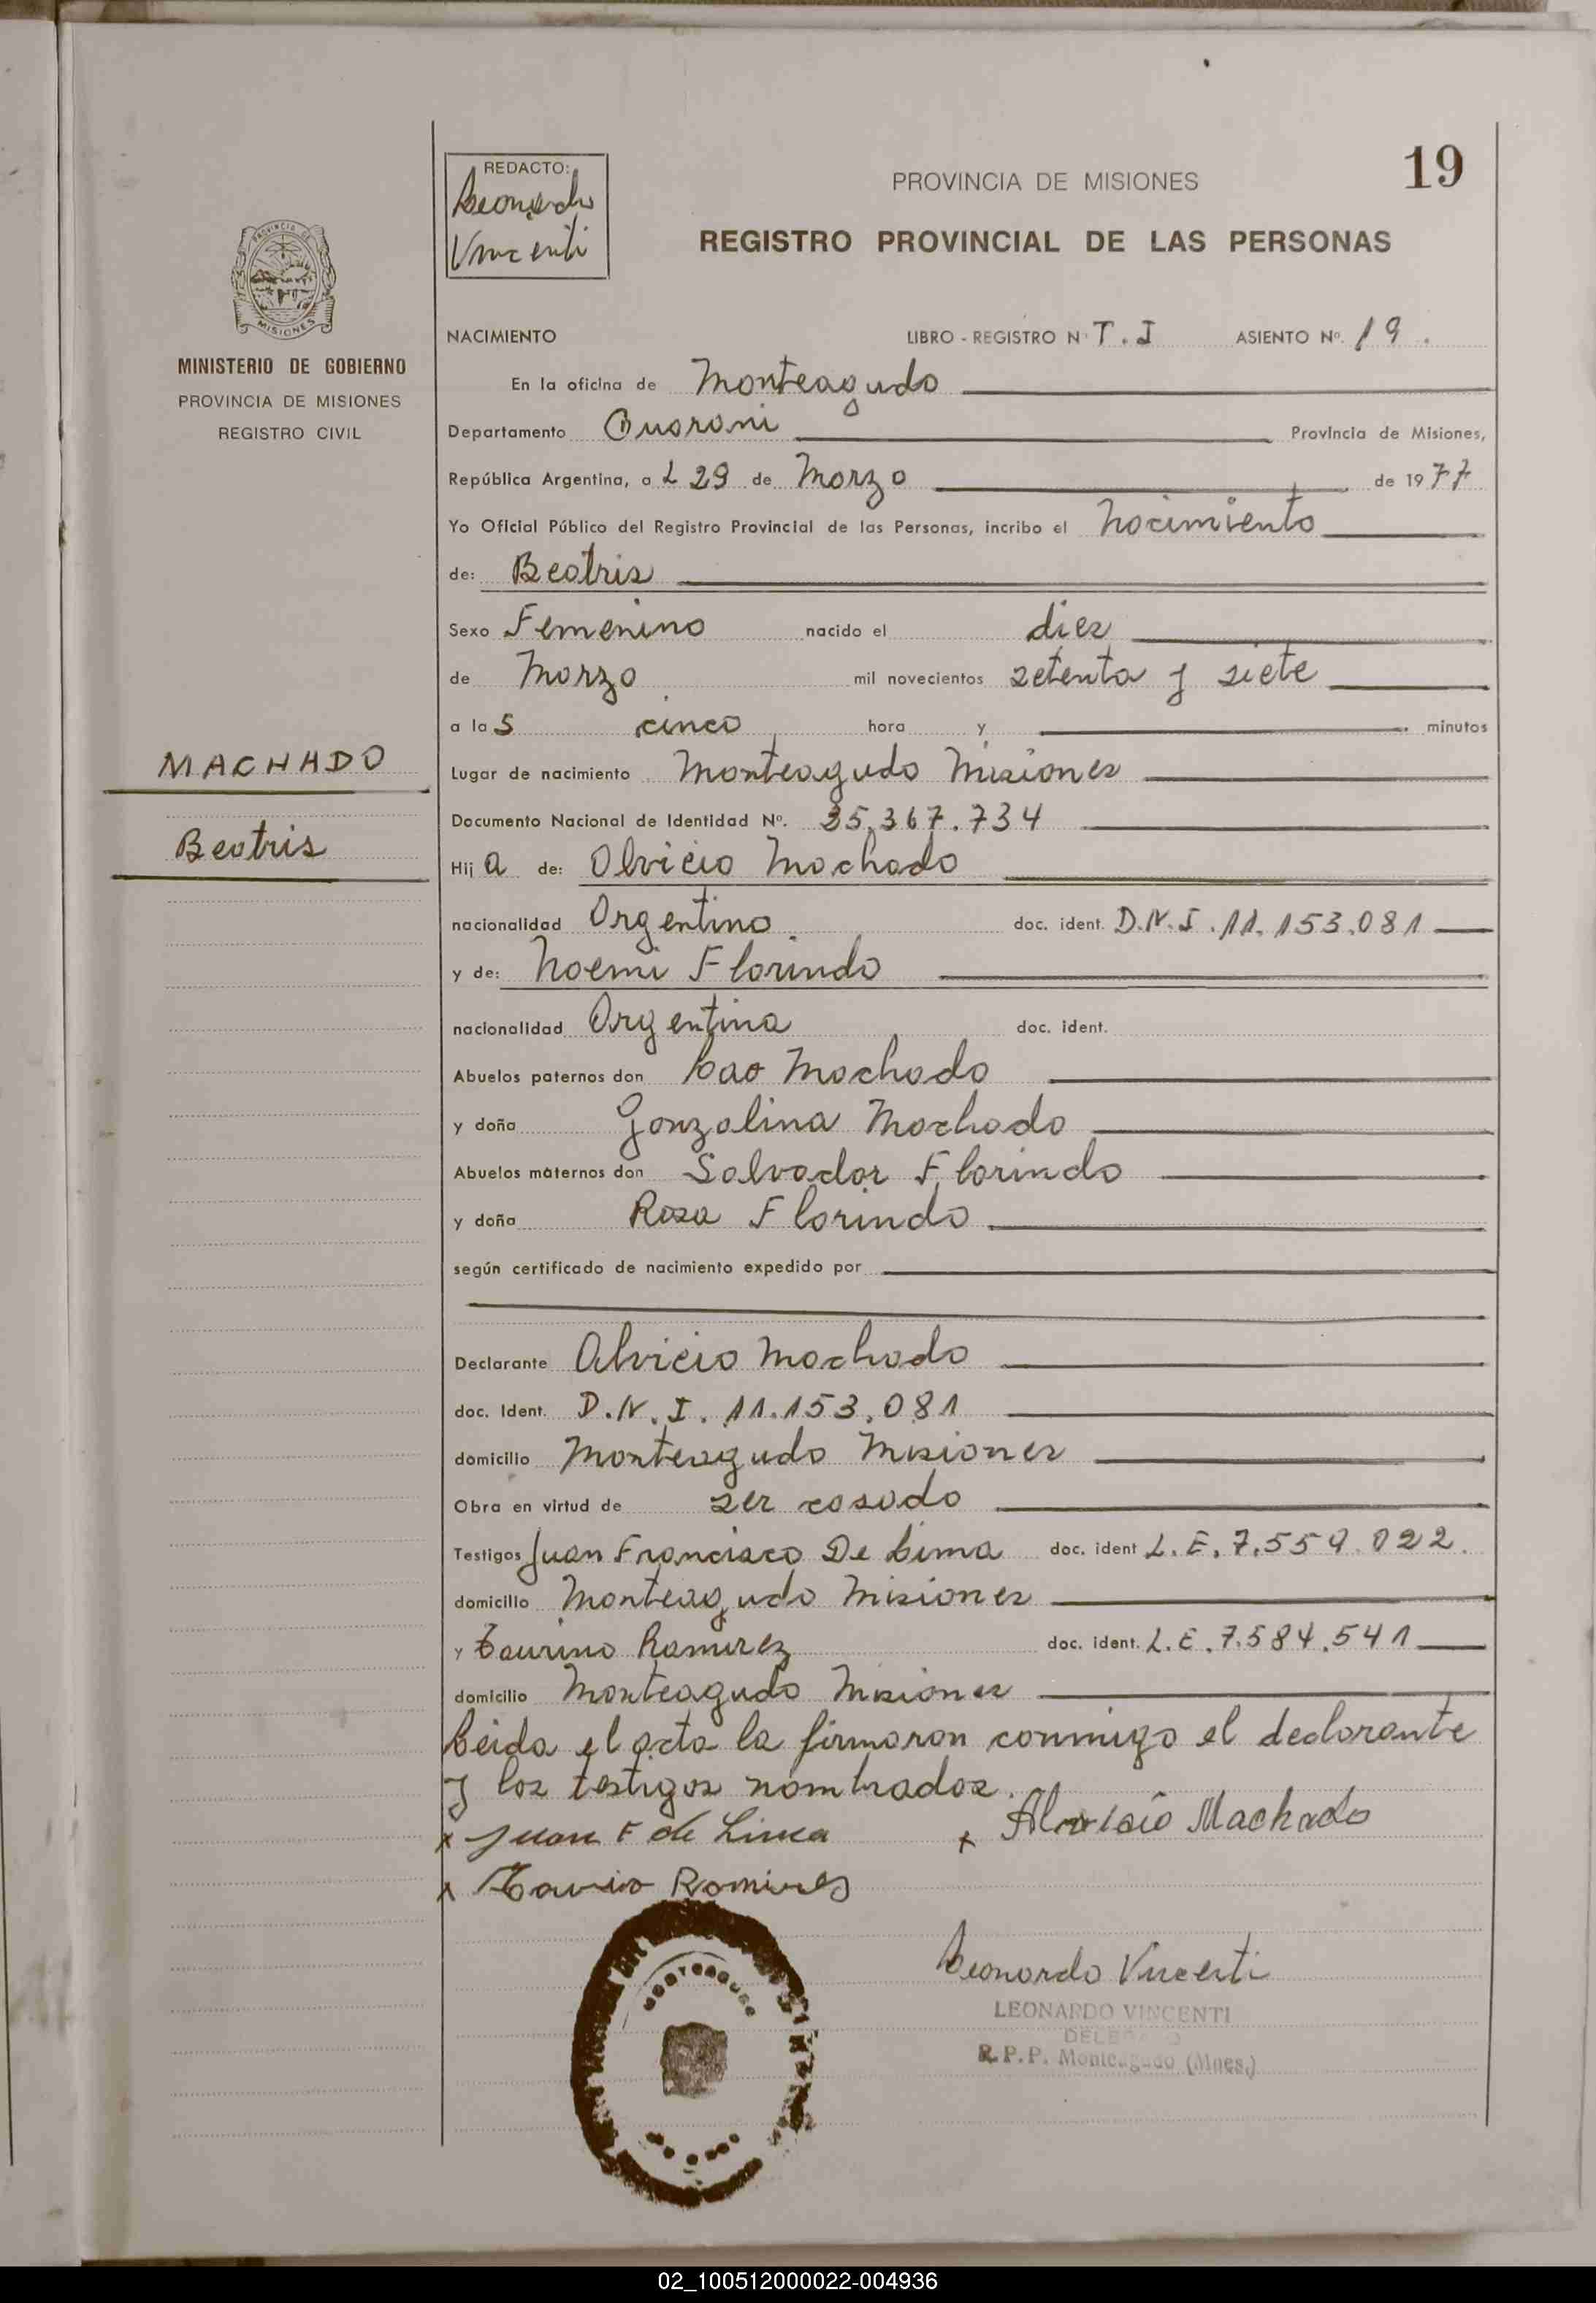 19
REDACTO:
Leonardo
Vincenti
PROVINCIA DE MISIONES
REGISTRO PROVINCIAL DE LAS PERSONAS
PROVINCIA DE
MISIONES
MINISTERIO DE GOBIERNO
PROVINCIA DE MISIONES
REGISTRO CIVIL
MACHADO
Beatris
NACIMIENTO LIBRO - REGISTRO Nº T. I ASIENTO Nº. 19.
En la oficina de Monteagudo
Departamento Guarani Provincia de Misiones,
República Argentina, a L 29 de Marzo de 1977
Yo Oficial Público del Registro Provincial de las Personas, incribo el nacimiento
de: Beatris
Sexo Femenino nacido el diez
de Marzo mil novecientos setenta y siete
a las cinco hora y minutos
Lugar de nacimiento Monteagudo Misiones
Documento Nacional de Identidad Nº. 25.367.734
Hij a de: Alvicio Machado
nacionalidad Argentino doc. ident. D.N.I. 11.153.081
y de: Noemi Florindo
nacionalidad Argentina doc. ident.
Abuelos paternos don Machado
y doña Gonzalina Machado
Abuelos maternos don Salvador Florindo
y doña Rosa Florindo
según certificado de nacimiento expedido por
Declarante Alvicio Machado
doc. Ident. D.N.I. 11.153.081
domicilio Monteagudo Misiones
Obra en virtud de ser casado
Testigos Juan Francisco De Lima doc. ident L.E. 7.559.022.
domicilio Monteagudo Misiones
y Taurino Ramirez doc. ident. L.E. 7.584.541
domicilio Monteagudo Misiones
Leida el acta la firmaron conmigo el declarante
y los testigos nombrados.
x Juan F de Lima x Alvicio Machado
x Ramires
MONTEAGUDO
Leonardo Vincenti
LEONARDO VINCENTI
DELEGADO
R.P.P. Monteagudo (Mnes.)
02_100512000022-004936